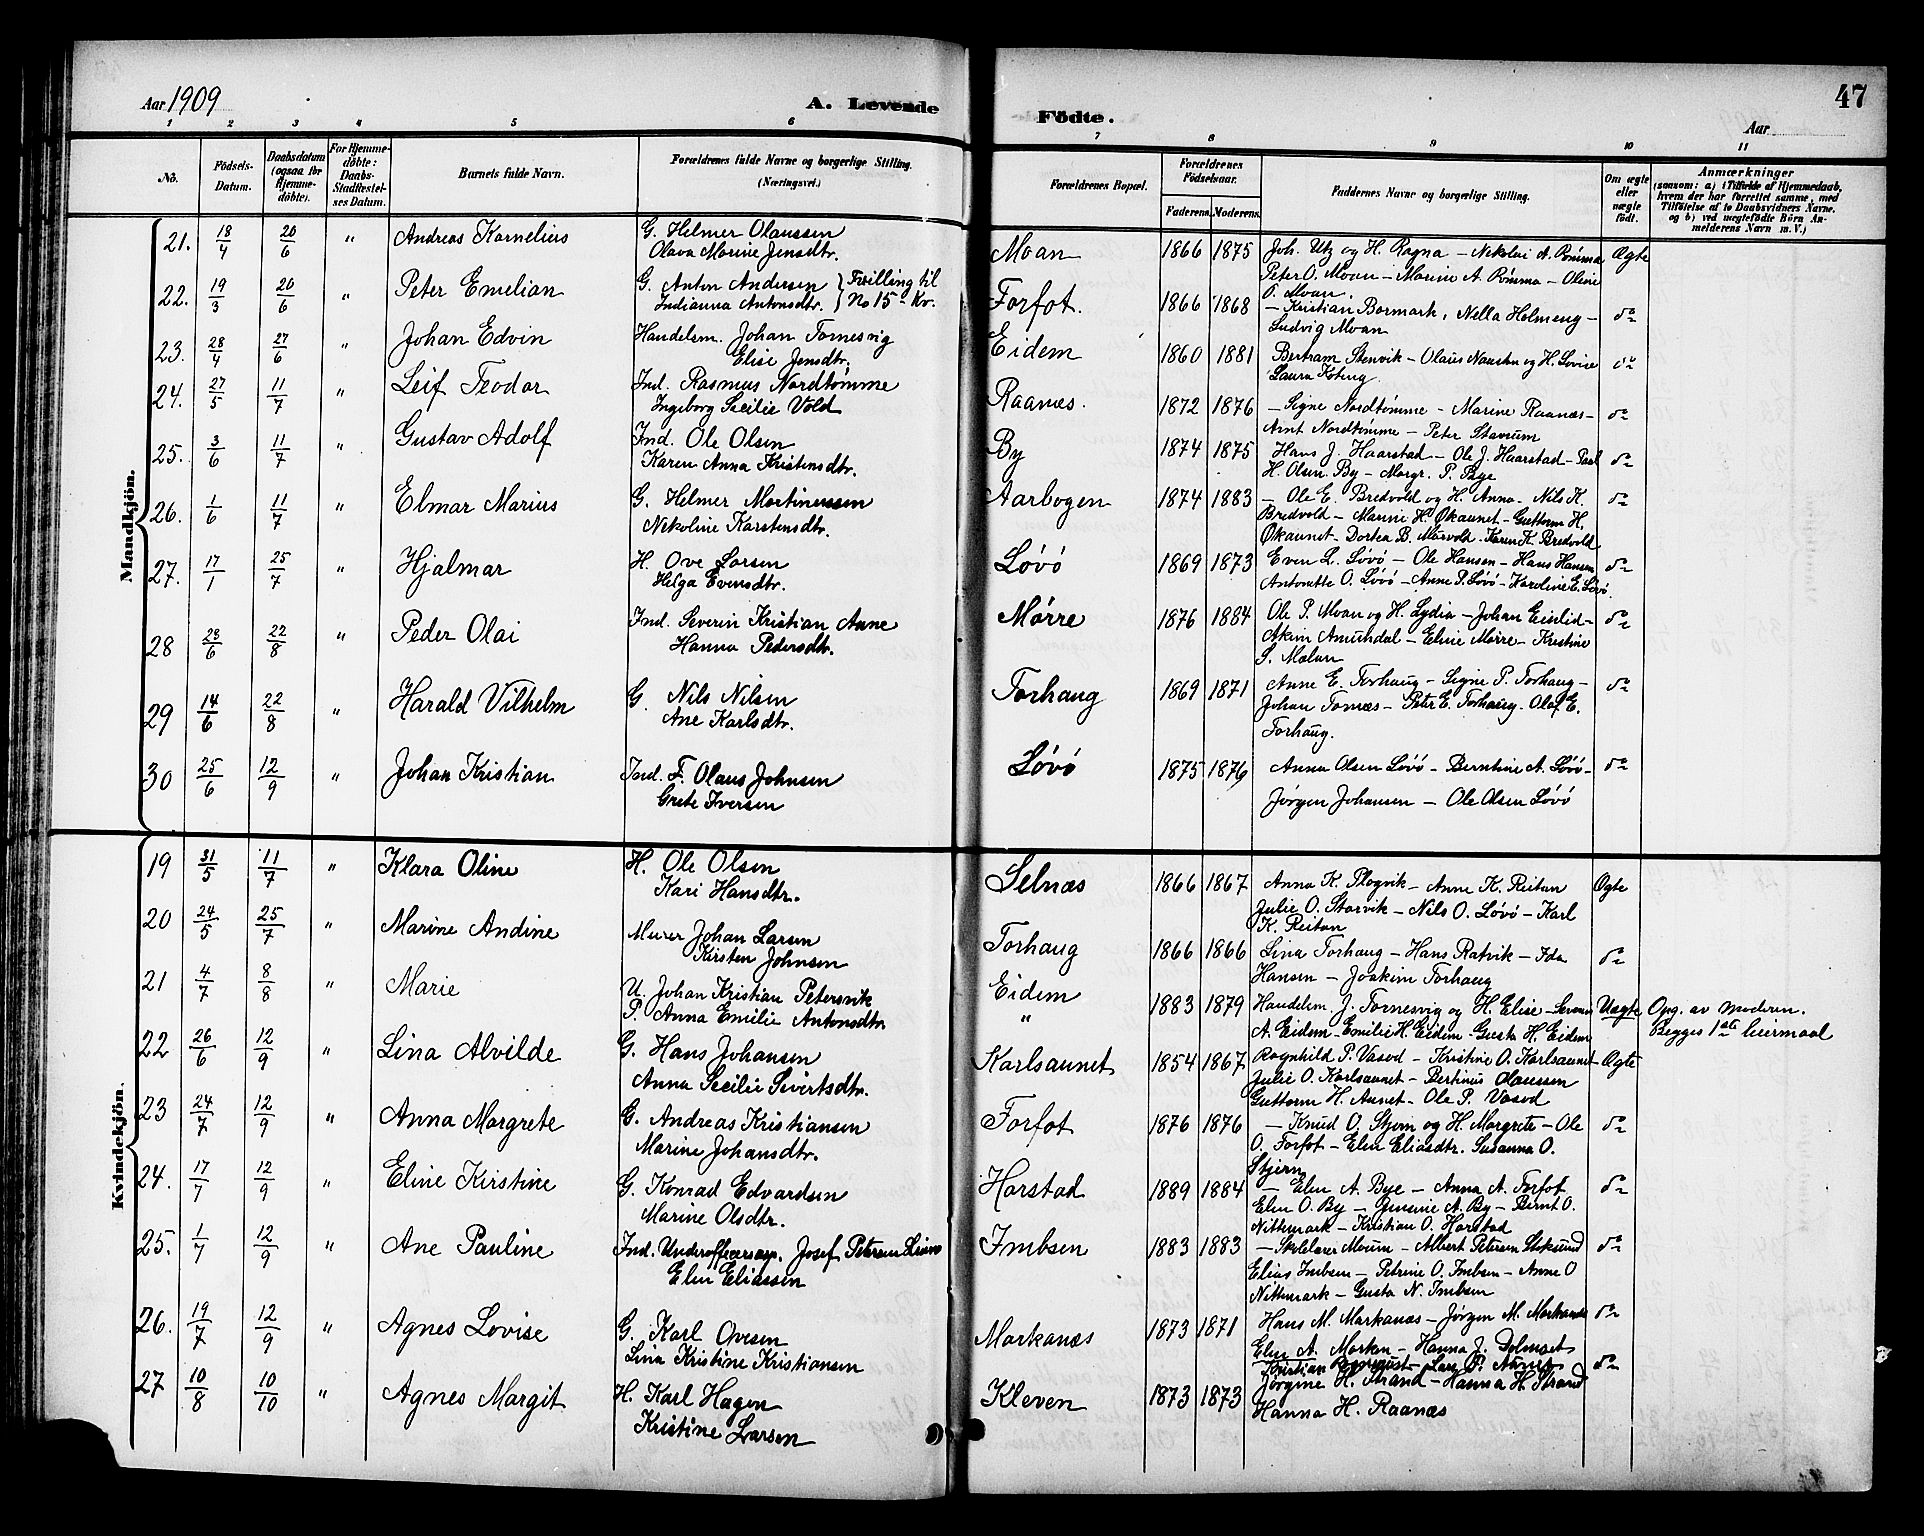 Aar 1909
A. Levende
Födte.
Aar
47
1 2 3 4 5 6 7 8 9 10 11
No. Födsels-Datum. Daabsdatum (ogsaa for Hjemme-döbte). For Hjemme-döbte: Daabs-Stadfæstel-ses Datum. Barnets fulde Navn. Forældrenes fulde Navne og borgerlige Stilling. (Næringsvei.) Forældrenes Bopæl. Forældrenes Födselsaar. Faderens. Moderens. Faddernes Navne og borgerlige Stilling. Om ægte eller uægte födt. Anmærkninger (saasom: a) i Tilfælde af Hjemmedaab, hvem der har forrettet samme, med Tilföielse af to Daabsvidners Navne, og b) ved uægtefödte Börn An-melderens Navn m. V.)
Mandkjön.
21. 18/4 20/6 " Andreas Kornelius G. Helmer Olaussen Moan 1866 1875 Joh. Utz og H. Ragna – Nekolai A. Rømma Ægte
Olava Marine Jensdtr. Peter O. Moan – Marine A. Rømma – Oline
O. Moan.
22. 19/3 20/6 " Peter Emelian G. Anton Andersen } Tvilling til Forfot. 1866 1868 – Kristian Bormark, Nella Holmeng – do
Indianna Antonsdtr. } No 15 – Kv. Ludvig Moan
23. 28/4 27/6 " Johan Edvin Handelsm. Johan Tornesvig Eidem 1860 1881 Bertram Stenvik – Olaus Naustan og H. Lovise do
Elise Jensdtr. Laura Koteng.
24. 27/5 11/7 " Leif Teodor Ind. Rasmus Nordtømme Raanæs. 1872 1876 – Signe Nordtømme – Marine Raanæs – do
Ingeborg Secilie Vold Arnt Nordtømme – Peter Stavrum
25. 3/6 11/7 " Gustav Adolf Ind. Ole Olsen By 1874 1875 Hans J. Haarstad – Ole J. Haarstad – Paul do
Karen Anna Kristensdtr. H. Olsen By – Margr. P. Bye
26. 1/6 11/7 " Elmar Marius G. Helmer Martinussen Aarbogen 1874 1883 – Ole E. Bredvold og H. Anna – Nils K. do
Nekoline Karstensdtr. Bredvold – Marine H. Økaunet – Guttorm H.
Økaunet – Dortea B. Mørvold. Karen K. Bredvold
27. 17/1 25/7 " Hjalmar H. Ove Larsen Løvø 1869 1873 Even L. Løvø – Ole Hansen – Hans Hansen do
Helga Evensdtr. Antonette O. Løvø – Anne P. Løvø – Karoline E. Løvø.
28 28/6 22/8 " Peder Olai Ind. Severin Kristian Aune Mørre 1876 1884 Ole P. Moan og H. Lydia – Johan Eislid – do
Hanna Pedersdtr. Akim Amundal – Eline Mørre – Kristine
S. Mælan
29 14/6 22/8 " Harald Vilhelm G. Nils Nilsen Torhaug 1869 1871 Anne E. Torhaug – Signe P. Torhaug – do
Ane Karlsdtr. Johan Tornæs – Peter E. Torhaug. Olaf E.
Torhaug.
30 25/6 12/9 " Johan Kristian Ind. F. Olaus Johnsen Løvø 1875 1876 Anna Olsen Løvø – Berntine A. Løvø – do
Grete Iversen Jørgen Johansen – Ole Olsen Løvø
Kvindekjön.
19 31/5 11/7 " Klara Oline H. Ole Olsen Selnæs 1866 1867 Anna K. Plogvik – Anne K. Reitan Ægte
Kari Hansdtr. Julie O. Storvik – Nils O. Løvø – Karl
K. Reitan
20 24/5 25/7 " Marine Andine Murer Johan Larsen Torhaug 1866 1866 Lina Torhaug – Hans Ratvik – Ida do
Kirsten Johnsen Hansen – Joakim Torhaug
21 4/7 8/8 " Marie U. Johan Kristian Petersvik Eidem 1883 1879 Handelsm. J. Tornesvig og H. Elise – Uægte Opg. av moderen.
P. Anna Emilie Antonsdtr. " A. Eidem – Emilie H. Eidem – Gusta H. Eidem Begges 1ste leiermaal
22 26/6 12/9 " Lina Alvilde G. Hans Johansen Karlsaunet 1854 1867 Ragnhild P. Vasod – Kristine O. Karlsaunet – Ægte
Anna Secilie Sivertsdtr. Julie O. Karlsaunet – Bertinus Olaussen
Guttorm H. Aunet – Ole P. Vasod
23 24/7 12/9 " Anna Margrete G. Andreas Kristiansen Forfot 1876 1876 – Knud O. Stjern og H. Margrete – Ole do
Marine Johansdtr. O. Forfot – Elen Eliasdtr. Susanna O.
Stjern
24. 17/7 12/9 " Eline Kirstine G. Konrad Edvardsen Harstad 1889 1884 – Elen A. Bye – Anna A. Forfot do
Marine Olsdtr. Elen O. By – Jensine A. By – Bernt O.
Nittemark – Kristian O. Harstad
25. 1/7 12/9 " Ane Pauline Ind. Underofficersasp. Josef Petersen Imbsen 1883 1883 – Skolelærer Moum – Albert Petersen Stoksund do
Elen Eliassen Elias Imbsen – Petrine O. Imbsen – Anne O
Nittemark – Gusta N. Imbsen
26. 19/7 12/9 " Agnes Lovise G. Karl Ovesen Markanæs 1873 1871 Hans M. Markanæs – Jørgen M. Markanæs do
Lina Kristine Kristiansen Elen A. Morken – Hanna J. Dolmset
Kristian – Lars P. Aunet
27 10/8 10/10 " Agnes Margit H. Karl Hagen Kleven 1873 1873 Jørgine H. Strand – Hanna H. Strand do
Kristine Larsen Hanna H. Raanæs